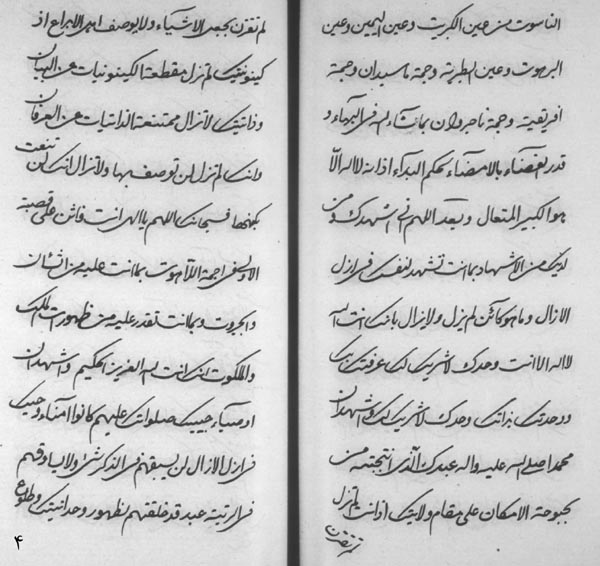 الناسوت من عين الكبريت وعين اليمين وعين
البرهوت وعين الطبرية وجمة ماسيدان وجمة
افريقية وجمة ناجروان بما شاء الله في البهاء و
قدر بقضاء بالامضاء بحكم البداء اذ انه لا اله الا
هو الكبير المتعال وبعد اللهم اني اشهدك ومن
لديك من الاشهاد بما انت تشهد لنفسك في ازل
الازال وما هو كائن لم يزل ولا يزال بانك انت الله
لا اله الا انت وحدك لا شريك لك عرفتك بك
ووحدتك بذاتك وحدك لا شريك لك واشهد ان
محمدا صلى الله عليه واله عبدك الذي انتجبته من
بحبوحة الامكان على مقام ولايتك اذ انت لم تزل
لم تقرن بجعل الاشياء ولا يوصفك اهل الابداع اذ
كينونيتك لم تزل مقطعة الكينونيات عن البيان
وذاتيتك لا تزال ممتنعة الذاتيات عن العرفان
وانك لم تزل لن توصف بها ولا تزال انك لن تنعت
بكنهها فسبحانك اللهم يا الهي انت على قصبة
الاولى في اجمة اللاهوت بما انت عليه من الشأن
والجبروت وبما انت تقدر عليه من ظهورات الملك
والملكوت انك انت الله العزيز الحكيم واشهد ان
اوصياء حبيبك صلواتك عليهم كانوا امناء وحيك
في ازل الازال لن يسبقهم في الذكر شئ ولا يساوقهم
في الرتبة عبد قد خلقتهم لظهور وحدانيتك وطلوع
۴